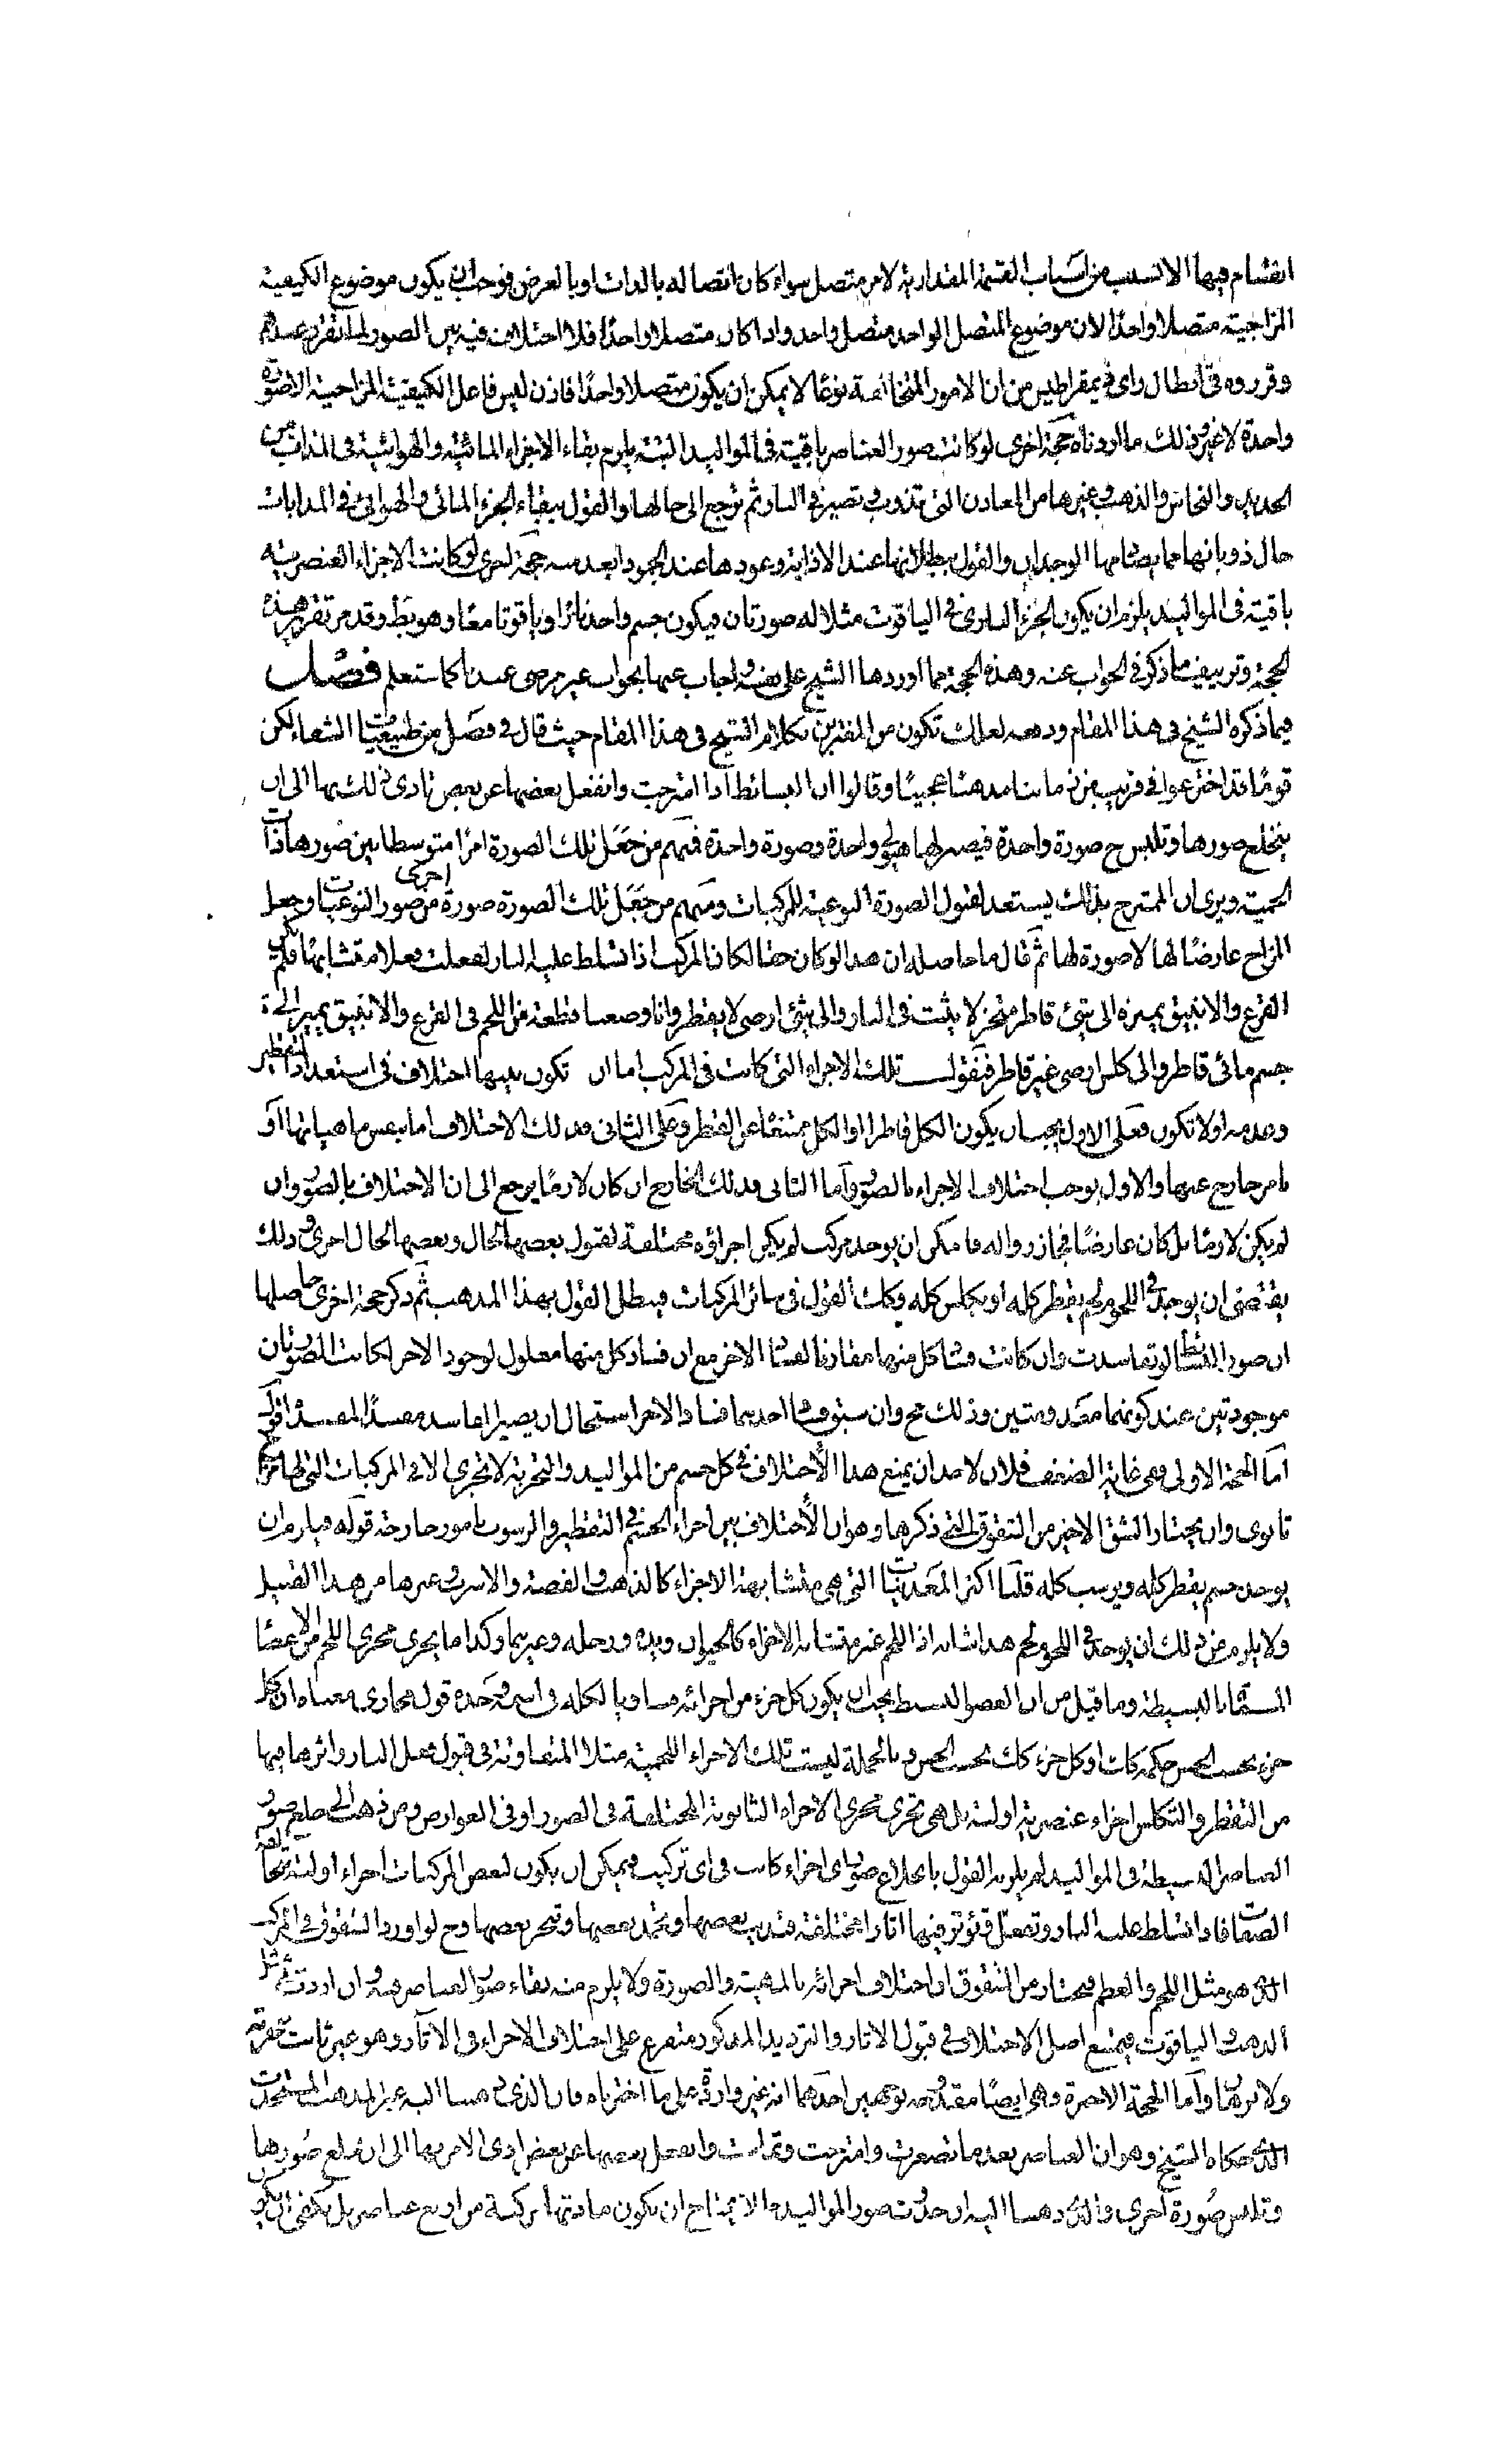 انقسام فيها الا بسبب من اسباب القسمة المقدارية لامر متصل سواء كان اتصاله بالذات او بالعرض فوجب ان يكون موضوع الكيفية
المزاجية متصلا واحدا لان موضوع المتصل الواحد متصل واحد واذا كان متصلا واحدا فلا اختلاف فيه بين الصور لما تقرر عندهم
وقرروه فى ابطال راى ذيمقراطيس من ان الامور المتخالفة نوعا لا يمكن ان يكون متصلا واحدا فاذن ليس فاعل الكيفية المزاجية الا صورة
واحدة لا غير وذلك ما اردناه حجة اخرى لو كانت صور العناصر باقية فى المواليد الثلثة يلزم بقاء الاجزاء المائية والهوائية فى الذائب من
الحديد والنحاس والذهب وغيرها من المعادن التى تذوب وتصير فى النار ثم ترجع الى حالها والقول ببقاء الجزء المائى والهوائى فى المذابات
حال ذوبانها مما يصادمها الوجدان والقول ببطلانها عند الاذابة وعودها عند الجمود ابعد منه حجة اخرى لو كانت الاجزاء العنصرية
باقية فى المواليد يلزم ان يكون الجزء النارى فى الياقوت مثلا له صورتان فيكون جسم واحد نارا وياقوتا معا وهو بط وقد مر تقرير هذه
الحجة وتزييف ما ذكر فى الجواب عنه وهذه الحجة مما اوردها الشيخ على نفسه واجاب عنها بجواب غير مرضى عندنا كما ستعلم فصل
فيما ذكره الشيخ فى هذا المقام ودفعه لعلك تكون من المغترين بكلام الشيخ فى هذا المقام حيث قال فى فصل من طبيعيات الشفاء لكن
قوما قد اخترعوا فى قريب من زماننا مذهبا عجيبا وقالوا ان البسائط اذا امتزجت وانفعل بعضها عن بعض تادى ذلك بها الى ان
ينخلع صورها وتلبس ح صورة واحدة فيصير لها هيولى واحدة وصورة واحدة فمنهم من جعل تلك الصورة امرا متوسطا بين صورها ذات
الحمية ويرى ان الممتزج بذلك يستعد لقبول الصورة النوعية للمركبات ومنهم من جعل تلك الصورة صورة اخرى من صور النوعيات وجعل
المزاج عارضا لها لا صورة لها ثم قال ما حاصله ان هذا لو كان حقا لكان المركب اذا تسلط عليه النار لفعلت فعلا متشابها فلم يكن
القرع والانبيق يميزه الى شئ قاطر متبخر لا يثبت فى النار والى شئ ارضى لا يقطر وانا وضعنا قطعة من اللحم فى القرع والانبيق يميز الى
جسم مائى قاطر والى كلس ارضى غير قاطر فنقول تلك الاجزاء التى كانت فى المركب اما ان تكون بينها اختلاف فى استعداد التقطير
وعدمه اولا تكون فعلى الاول يجب ان يكون الكل قاطرا او الكل ممتنعا عن القطر وعلى الثانى فذلك الاختلاف اما بنفس ماهياتها او
بامر خارج عنها والاول يوجب اختلاف الاجزاء بالصور واما الثانى فذلك الخارج ان كان لازما يرجع الى ان الاختلاف بالصور وان
لم يكن لازما بل كان عارضا فجاز زواله فامكن ان يوجد مركب لم يكن اجزاؤه مختلفة لقبول بعضها لحال وبعضها لحال اخرى وذلك
يقتضى ان يوجد فى اللحوم لحم يقطر كله او يتكلس كله وكك القول فى سائر المركبات فيبطل القول بهذا المذهب ثم ذكر حجة اخرى حاصلها
ان صور البسائط لو تفاسدت وان كانت فساد كل منها مقارنا لفساد الاخر مع ان فساد كل منها معلول لوجود الاخر لكانت الصورتان
موجودتين عند كونهما معدومتين وذلك مح وان سبق فساد احديهما فساد الاخر استحال ان يصير الفاسد مفسدا لمفسده اقول
اما الحجة الاولى فهى غاية الضعف فلان لاحد ان يمنع هذا الاختلاف فى كل جسم من المواليد والتجربة لا تجرى الا فى المركبات التى لها مزاج
ثانوى وان يختار الشق الاخير من الشقوق التى ذكرها وهو ان الاختلاف بين اجزاء الجسم فى التقطير والرسوب بامور خارجة قوله فيلزم ان
يوجد جسم يقطر كله ويرسب كله قلنا اكثر المعدنيات التى هى متشابهة الاجزاء كالذهب والفضة والاسرب وغيرها من هذا القبيل
ولا يلزم من ذلك ان يوجد فى اللحوم لحم هذا شانه اذا اللحم غير متشابه الاجزاء كالحيوان ويده ورجله وغيرهما وكذا ما يجرى مجرى اللحم من الاعضاء
المسماة بالبسيطة وما قيل من ان العضو البسيط يجب ان يكون كل جزء من اجزائه مساويا لكله فى اسمه وحده قول مجازى معناه ان كل
جزء بحسب الحس حكمه كك او كل جزء كك بحسب الحس وبالجملة ليست تلك الاجزاء اللحمية مثلا المتفاوتة فى قبول فعل النار واثرها فيها
من التقطر والتكلس اجزاء عنصرية اولية بل هى تجرى مجرى الاجزاء الثانوية المختلفة فى الصور او فى العوارض ومن ذهب الى خلع صور
العناصر البسيطة فى المواليد لم يلزمه القول بانخلاع صور اى اجزاء كانت فى اى تركيب ويمكن ان يكون لبعض المركبات اجزاء اولية متخالفة
الصفات فاذا تسلط عليه النار وتفعل وتؤثر فيها اثارا مختلفة فتذيب بعضها وتجمد بعضها وتبخر بعضها وح لو اورد الشقوق فى المركب
الذى هو مثل اللحم والعظم فيختار من الشقوق ان اختلاف اجزائه بالمهية والصورة ولا يلزم منه بقاء صور العناصر فيه وان اوردت فى مثل
الذهب والياقوت فيمنع اصل الاختلاف فى قبول الاثار والترديد المذكور متفرع على اختلاف الاجزاء فى الاثار وهو غير ثابت تجربة
ولا برهانا واما الحجة الاخيرة وهى ايضا مقدوحة بوجهين احدهما انه غير واردة على ما اخترناه فان الذى ذهبنا اليه غير المذهب المستحدث
الذى حكاه الشيخ وهو ان العناصر بعد ما تصغرت وامتزجت وتماست وانفعل بعضها عن بعض ادى الامر بها الى ان خلع صورها
وتلبس صورة اخرى والذى ذهبنا اليه ان حدوث صور المواليد مما لا يحتاج ان يكون مادتها مركبة من اربع عناصر بل يكفى ان يكون